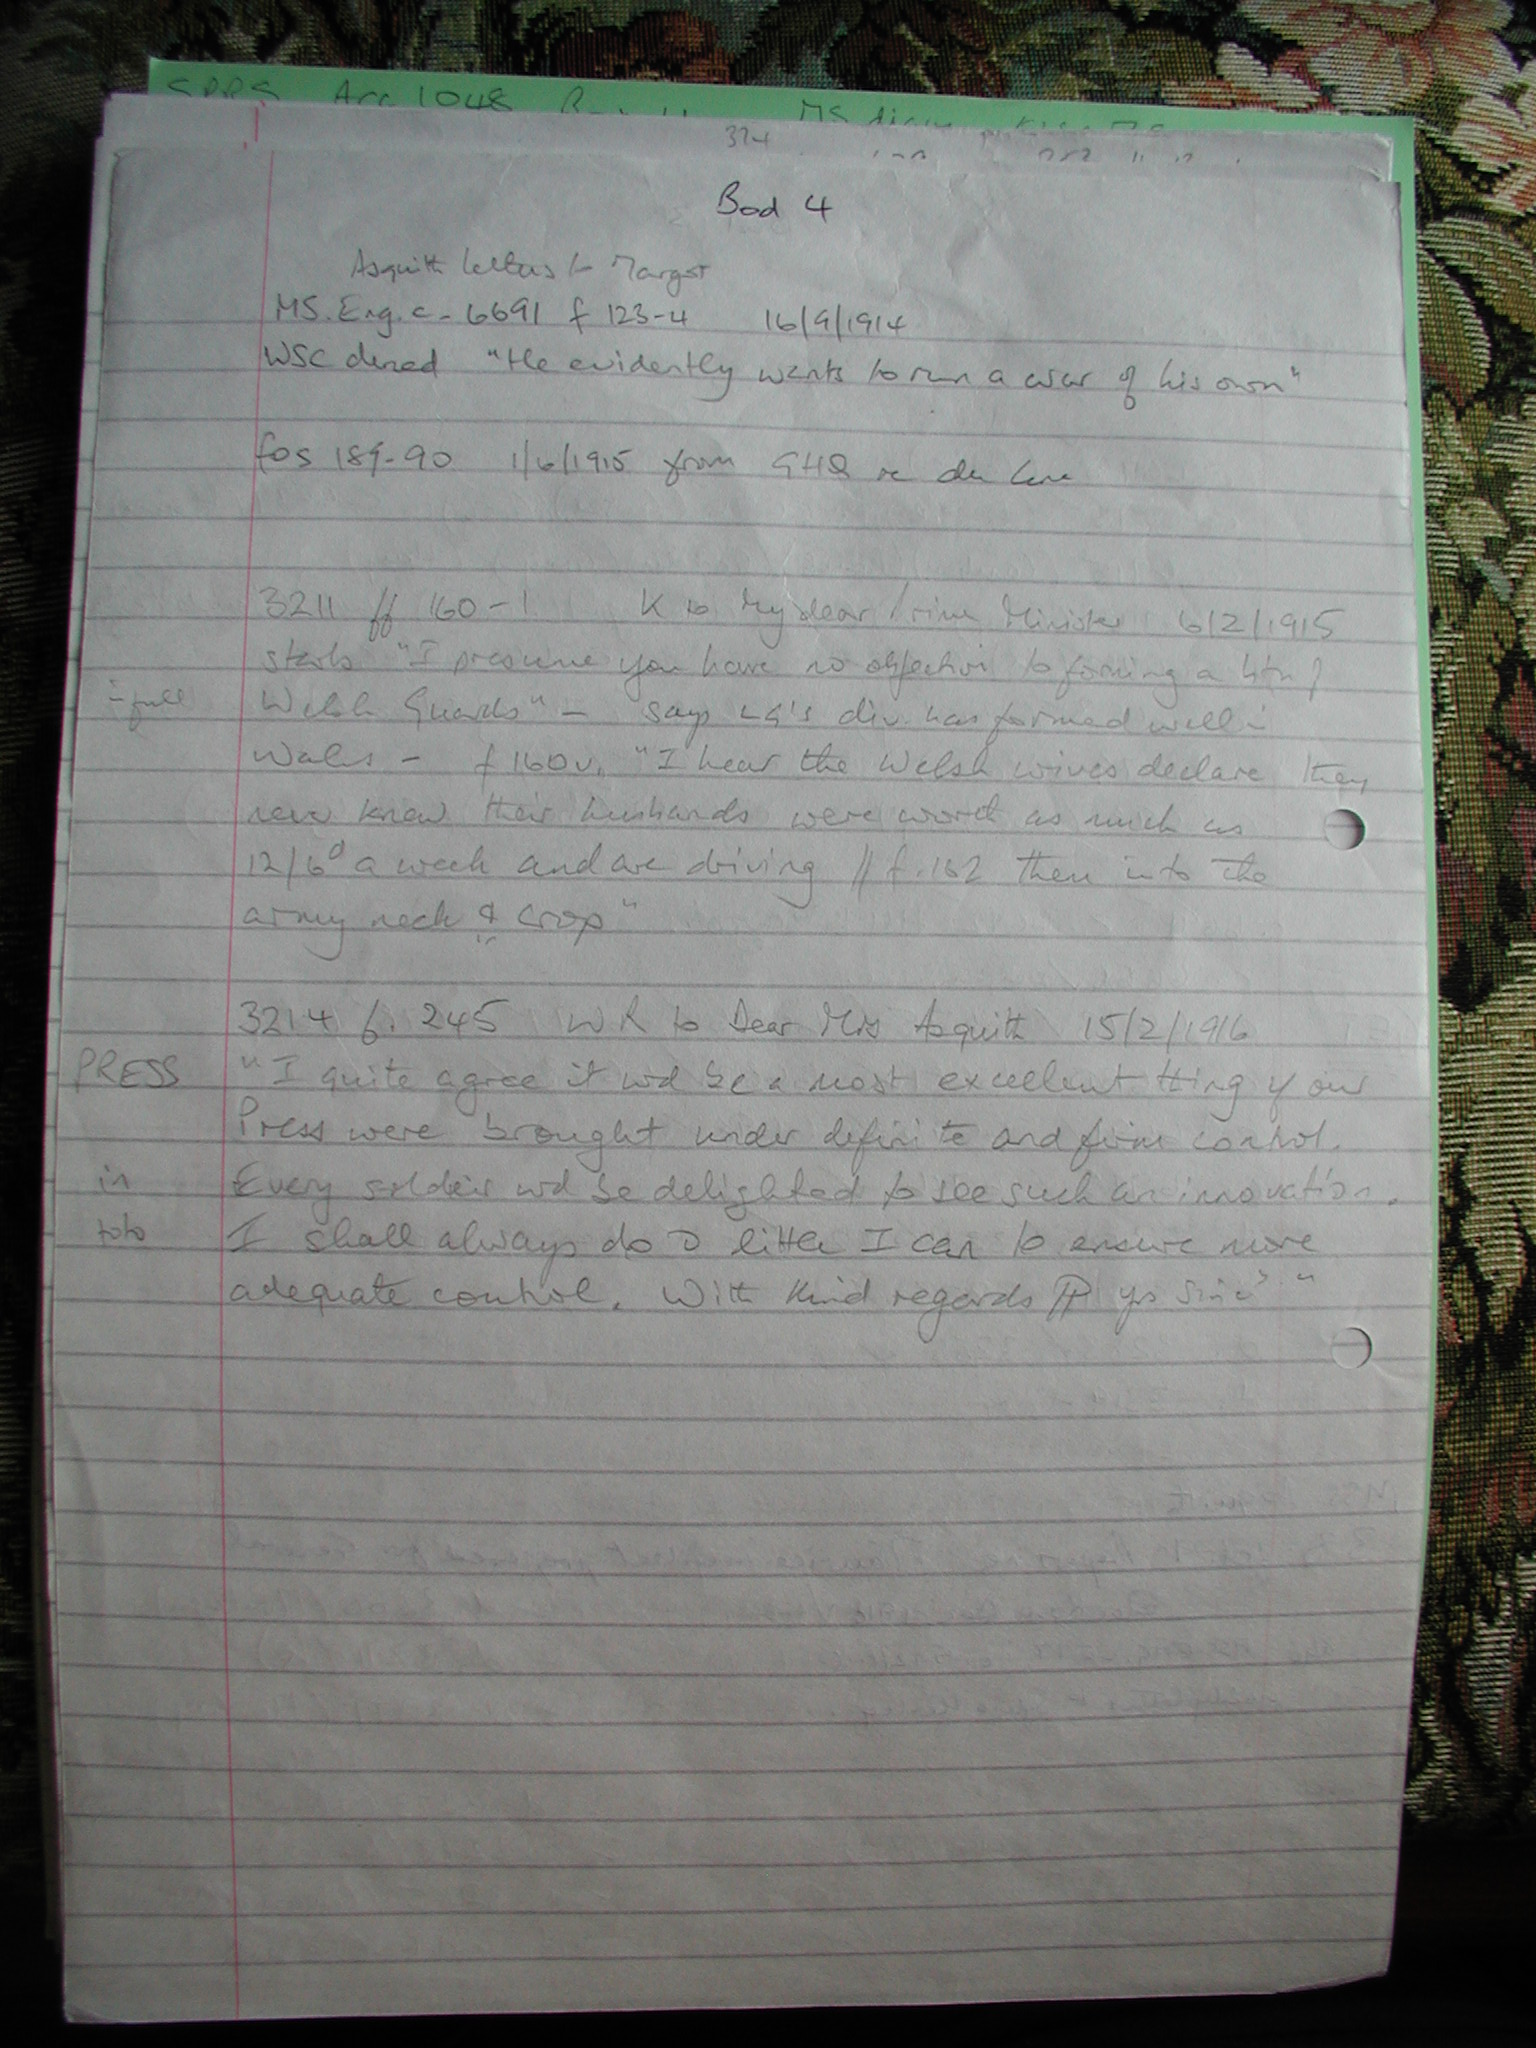 SPRS Acc 1048 MS diary
324
Bod 4
Asquith letters to Margot
MS. Eng. c. 6691 f 123-4 16/9/1914
WSC "He evidently wants to run a war of his own"
fos 189-90 1/6/1915 from GHQ re
3211 ff 160-1 K to My dear Prime Minister 6/2/1915
starts "I presume you have no objection to forming a btn of
in full Welsh Guards" - says LG's div. has formed well in
Wales - f 160v. "I hear the Welsh wives declare they
never knew their husbands were worth as much as
12/6d a week and are driving // f. 162 them into the
army neck & crop"
3214 f. 245 WR to Dear Mrs Asquith 15/2/1916
PRESS "I quite agree it wd be a most excellent thing if our
Press were brought under definite and firm control.
in Every soldier wd be delighted to see such an innovation.
toto I shall always do little I can to ensure more
adequate control. With kind regards yrs Sinc"